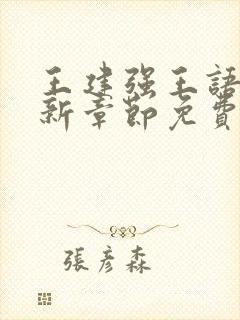 王建强王語
新章節免費
張彥森